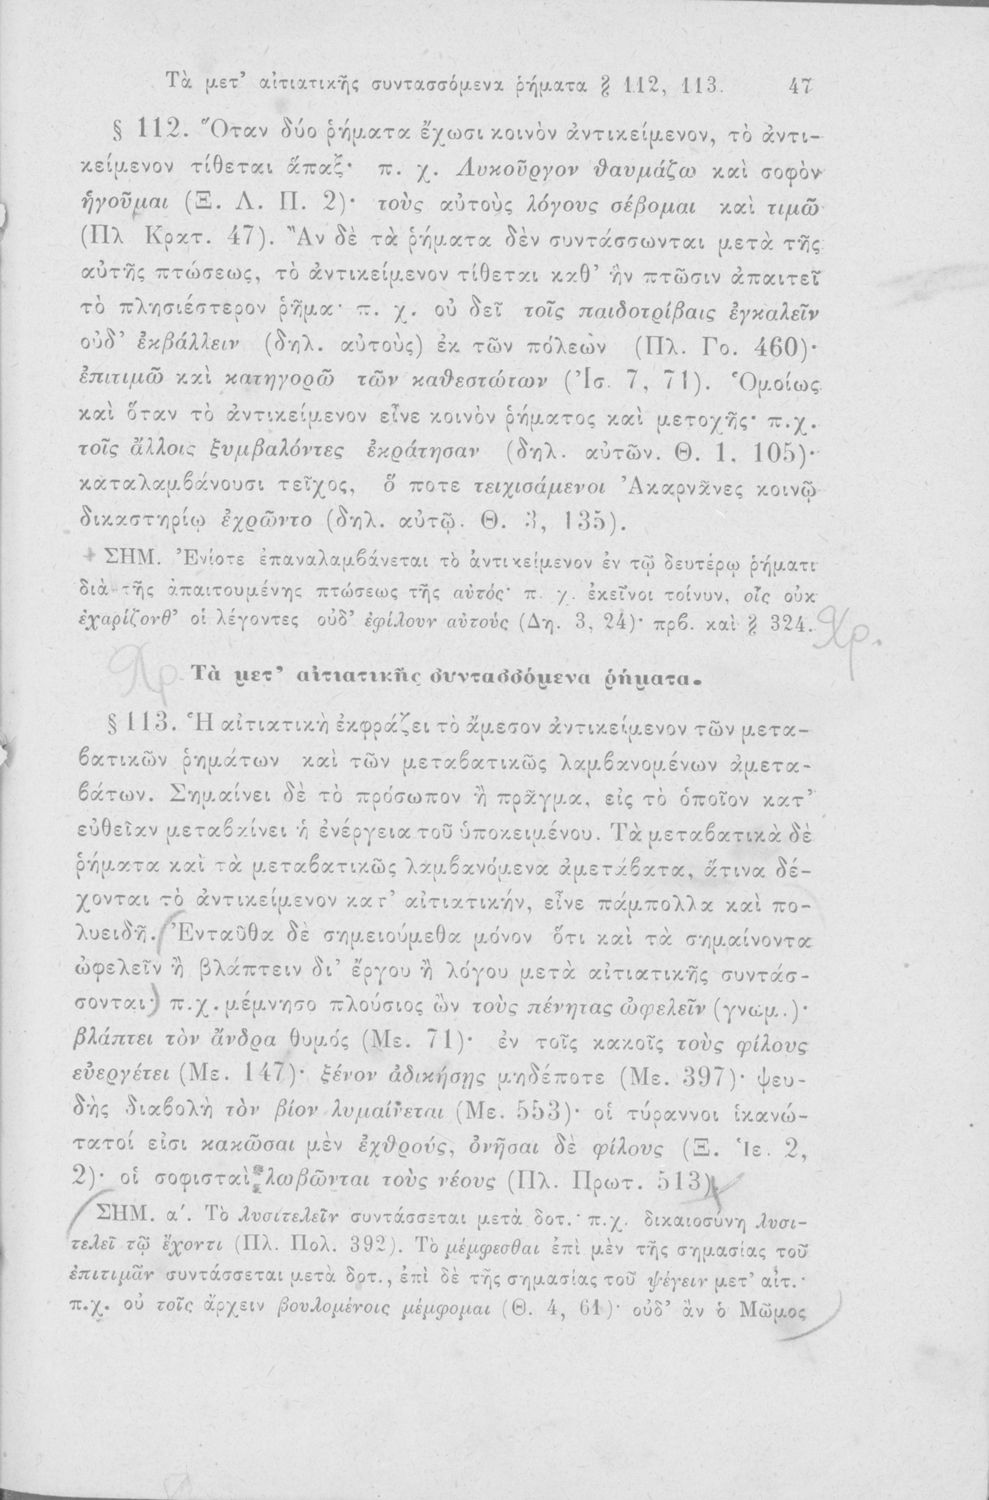 Τὰ μετ’ αἰτιατικῆς συντασσόμενα ῥήματα § 112, 113. 47
§ 112. Ὅταν δύο ῥήματα ἔχωσι κοινὸν ἀντικείμενον, τὸ ἀντι-
κείμενον τίθεται ἅπαξ· π. χ. Λυκοῦργον θαυμάζω καὶ σοφὸν
ἡγοῦμαι (Ξ. Λ. Π. 2)· τοὺς αὐτοὺς λόγους σέβομαι καὶ τιμῶ
(Πλ Κρατ. 47). Ἂν δὲ τὰ ῥήματα δὲν συντάσσωνται μετὰ τῆς
αὐτῆς πτώσεως, τὸ ἀντικείμενον τίθεται καθ’ ἣν πτῶσιν ἀπαιτεῖ
τὸ πλησιέστερον ῥῆμα· π. χ. οὐ δεῖ τοῖς παιδοτρίβαις ἐγκαλεῖν
οὐδ’ ἐκβάλλειν (δηλ. αὐτοὺς) ἐκ τῶν πόλεων (Πλ. Γο. 460)·
ἐπιτιμῶ καὶ κατηγορῶ τῶν καθεστώτων (Ἰσ. 7, 71). Ὁμοίως
καὶ ὅταν τὸ ἀντικείμενον εἶνε κοινὸν ῥήματος καὶ μετοχῆς· π.χ.
τοῖς ἄλλοις ξυμβαλόντες ἐκράτησαν (δηλ. αὐτῶν. Θ. 1. 105)·
καταλαμβάνουσι τεῖχος, ὅ ποτε τειχισάμενοι Ἀκαρνᾶνες κοινῷ
δικαστηρίῳ ἐχρῶντο (δηλ. αὐτῷ. Θ. 3, 135).
ΣΗΜ. Ἐνίοτε ἐπαναλαμβάνεται τὸ ἀντικείμενον ἐν τῷ δευτέρῳ ῥήματι
διὰ τῆς ἀπαιτουμένης πτώσεως τῆς αὐτός· π. χ. ἐκεῖνοι τοίνυν, οἷς οὐκ
ἐχαρίζονθ’ οἱ λέγοντες οὐδ’ ἐφίλουν αὐτοὺς (Δη. 3, 24)· πρβ. καὶ § 324.
Χρ.
Χρ.
Τὰ μετ’ αἰτιατικῆς συντασσόμενα ῥήματα.
§ 113. Ἡ αἰτιατικὴ ἐκφράζει τὸ ἄμεσον ἀντικείμενον τῶν μετα-
βατικῶν ῥημάτων καὶ τῶν μεταβατικῶς λαμβανομένων ἀμετα-
βάτων. Σημαίνει δὲ τὸ πρόσωπον ἢ πρᾶγμα, εἰς τὸ ὁποῖον κατ’
εὐθεῖαν μεταβαίνει ἡ ἐνέργεια τοῦ ὑποκειμένου. Τὰ μεταβατικὰ δὲ
ῥήματα καὶ τὰ μεταβατικῶς λαμβανόμενα ἀμετάβατα, ἅτινα δέ-
χονται τὸ ἀντικείμενον κατ’ αἰτιατικήν, εἶνε πάμπολλα καὶ πο-
λυειδῆ. Ἐνταῦθα δὲ σημειούμεθα μόνον ὅτι καὶ τὰ σημαίνοντα
ὠφελεῖν ἢ βλάπτειν δι’ ἔργου ἢ λόγου μετὰ αἰτιατικῆς συντάσ-
σονται· π.χ. μέμνησο πλούσιος ὢν τοὺς πένητας ὠφελεῖν (γνωμ.)·
βλάπτει τὸν ἄνδρα θυμός (Με. 71)· ἐν τοῖς κακοῖς τοὺς φίλους
εὐεργέτει (Με. 147)· ξένον ἀδικήσῃς μηδέποτε (Με. 397)· ψευ-
δὴς διαβολὴ τὸν βίον λυμαίνεται (Με. 553)· οἱ τύραννοι ἱκανώ-
τατοί εἰσι κακῶσαι μὲν ἐχθρούς, ὀνῆσαι δὲ φίλους (Ξ. Ἱε. 2,
2)· οἱ σοφισταὶ λωβῶνται τοὺς νέους (Πλ. Πρωτ. 513).
ΣΗΜ. α΄. Τὸ λυσιτελεῖν συντάσσεται μετὰ δοτ.· π.χ. δικαιοσύνη λυσι-
τελεῖ τῷ ἔχοντι (Πλ. Πολ. 392). Τὸ μέμφεσθαι ἐπὶ μὲν τῆς σημασίας τοῦ
ἐπιτιμᾶν συντάσσεται μετὰ δοτ., ἐπὶ δὲ τῆς σημασίας τοῦ ψέγειν μετ’ αἰτ.·
π.χ. οὐ τοῖς ἄρχειν βουλομένοις μέμφομαι (Θ. 4, 61)· οὐδ’ ἂν ὁ Μῶμος